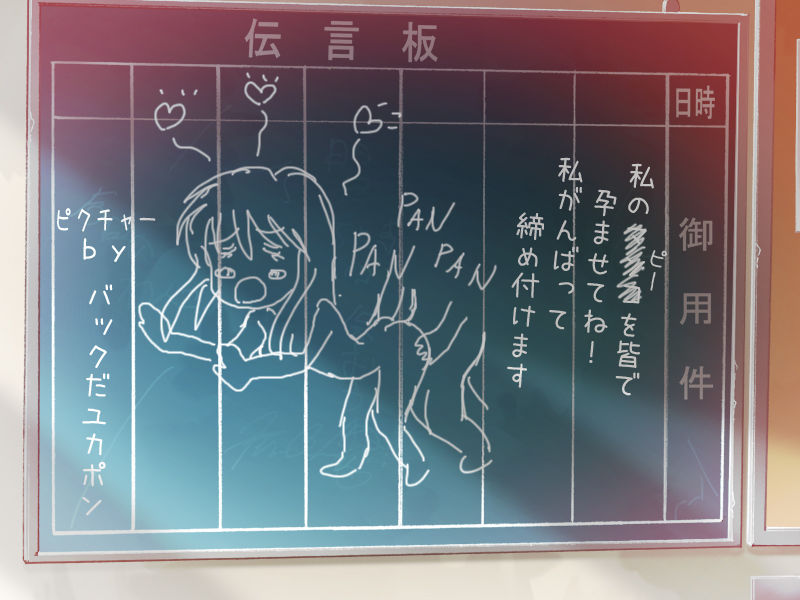 伝言板
日時
御用件
私の
ピー
を皆で
孕ませてね!
私がんばって
締め付けます
PAN
PAN
PAN
ピクチャー
by
バックだユカポン